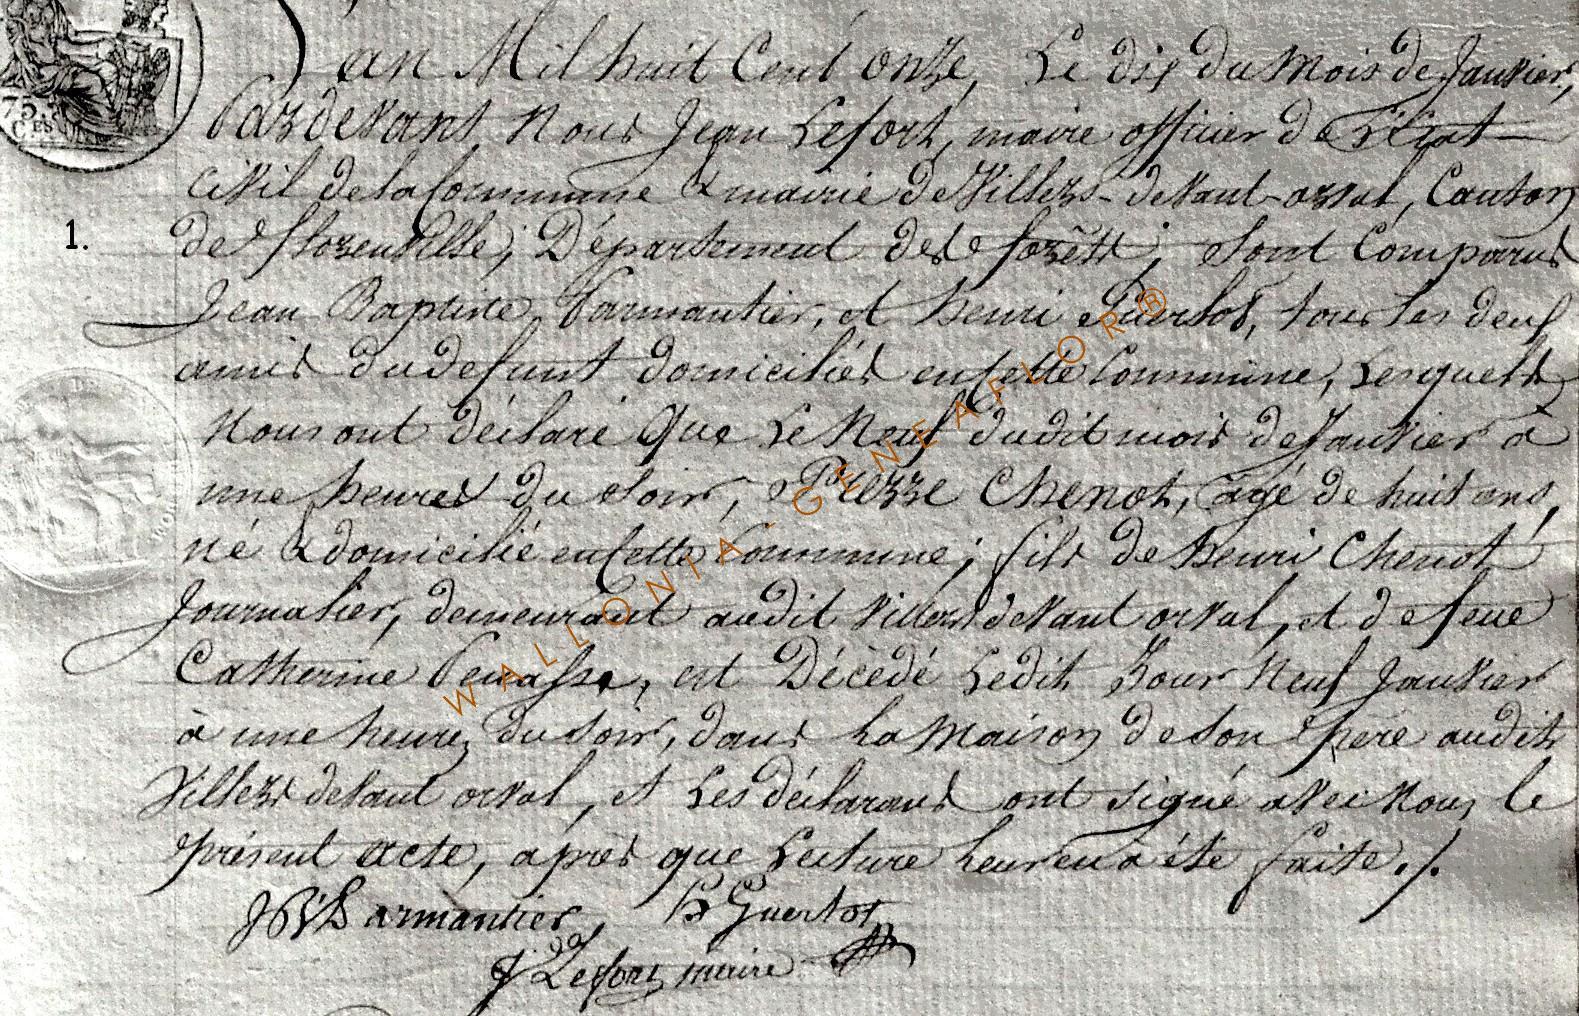 L'an Mil huit Cent onze, Le dix du Mois de Janvier,
Pardevant Nous Jean Lefort, maire officier de L'état
civil de la Commune & mairie de Villers-devant-orval, Canton
1. de florenville, Département des forêts, sont Comparus
Jean Baptiste Parmantier, et henri Guerlot, tous les deux
amis du defunt domiciliés en Cette Commune, Lesquels
Nous ont déclaré Que Le Neuf dudit mois de Janvier à
une heures du soir, Pierre Chenot, âgé de huit ans,
né & domicilié en Cette Commune; fils de henri Chenot
Journalier, demeurant audit villers devant orval, et de feue
Catherine, est Décédé Ledit Jour Neuf Janvier
à une heure, du soir, dans La Maison de son père audit
Villers devant orval, et Les déclarans ont signé avec nous le
présent acte, après que Lecture Leur en a été faite ./.
JB Parmantier, h Guerlot
J Lefort maire
75.
CES
WALLONIA-GENEAFLOR®